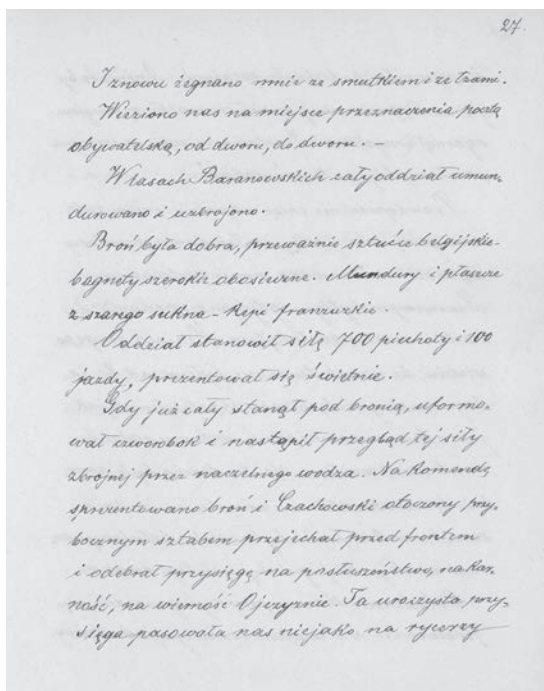 27.
I znowu żegnano mnie ze smutkiem i ze łzami.
Wieziono nas na miejsce przeznaczenia pocztą
obywatelską, od dworu, do dworu. –
W lasach Baranowskich cały oddział umun-
durowano i uzbrojono.
Broń była dobra, przeważnie sztućce belgijskie-
bagnety szerokie obosieczne. Mundury i płaszcze
z szarego sukna – Kepi franzuzkie.
Oddział stanowił siłę 700 piechoty i 100
jazdy, prezentował się świetnie.
Gdy już cały stanął pod bronią, uformo-
wał czworobok i nastąpił przegląd tej siły
zbrojnej przez naczelnego wodza. Na komendę
sprezentowano broń i Czachowski otoczony przy-
bocznym sztabem przejechał przed frontem
i odebrał przysięgę na posłuszeństwo, na kar-
ność, na wierność Ojczyznie. Ta uroczysta przy-
sięga pasowała nas niejako na rycerzy